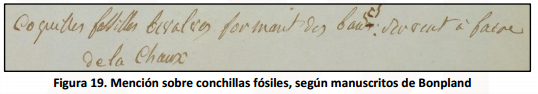 Coquilles fossilles bivalves formant des bancs. servent à faire
de la Chaux
Figura 19. Mención sobre conchillas fósiles, según manuscritos de Bonpland